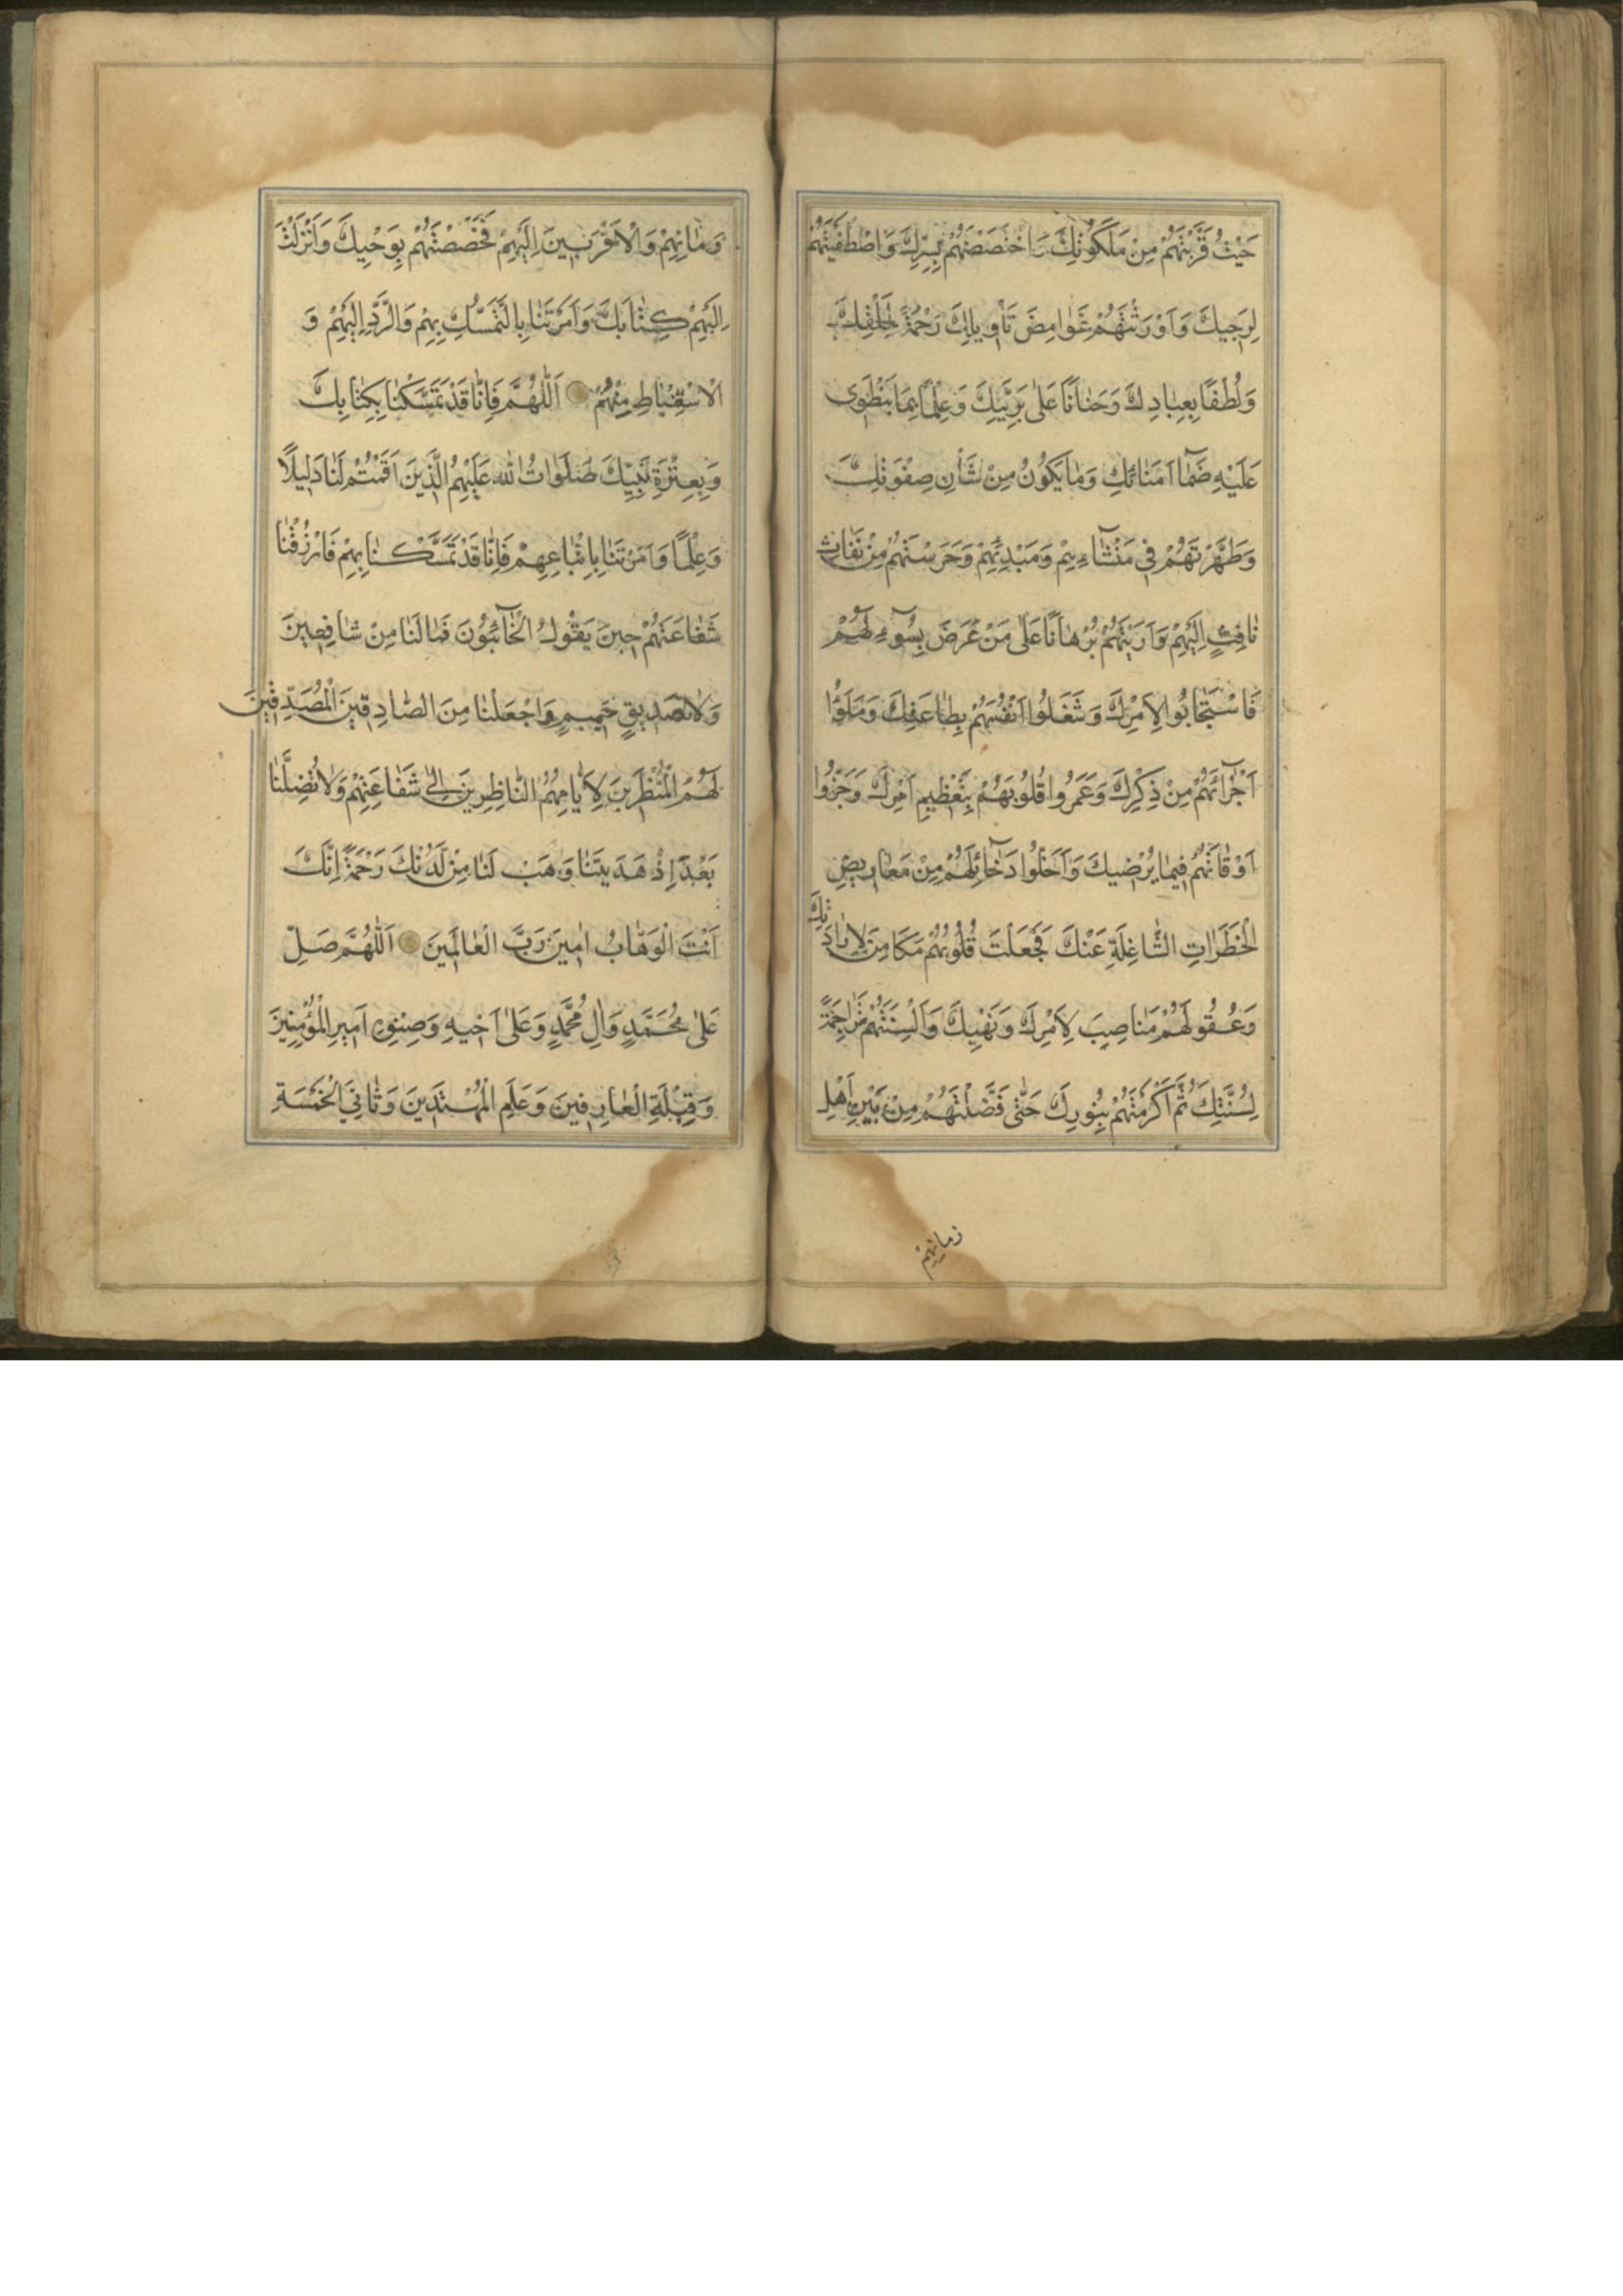 حَيْثُ قَرَّبْتَهُمْ مِنْ مَلَكُوتِكَ وَاخْتَصَصْتَهُمْ بِسِرِّكَ وَاصْطَفَيْتَهُمْ
لِوَحْيِكَ وَاَوْرَثْتَهُمْ غَوَامِضَ تَأْوِيلِكَ رَحْمَةً لِخَلْقِكَ
وَلُطْفًا بِعِبَادِكَ وَحَنَانًا عَلَى بَرِيَّتِكَ وَعِلْمًا بِمَا يَنْطَوِى
عَلَيْهِ ضَمَا اُمَنَائِكَ وَمَا يَكُونُ مِنْ شَأْنِ صِفْوَتِكَ
وَطَهَّرْتَهُمْ فِي مَنْشَاءِهِمْ وَمَبْدِئِهِمْ وَحَرَسْتَهُمْ مِنْ نَفَاثِ
نَافِثٍ اِلَيْهِمْ وَاَرَيْتَهُمْ بُرْهَانًا عَلَى مَنْ عَرَضَ بِسُوءٍ لَهُمْ
فَاسْتَجَابُوا لِاَمْرِكَ وَشَغَلُوا اَنْفُسَهُمْ بِطَاعَتِكَ وَمَلَؤُا
اَجْزَائَهُمْ مِنْ ذِكْرِكَ وَعَمَرُوا قُلُوبَهُمْ بِتَعْظِيمِ اَمْرِكَ وَجَزَّوُا
اَوْقَاتَهُمْ فِيمَا يُرْضِيكَ وَاَخْلَوْا دَخَائِلَهُمْ مِنْ مَعَارِيضِ
الْخَطَرَاتِ الشَّاغِلَةِ عَنْكَ فَجَعَلْتَ قُلُوبَهُمْ مَكَامِنَ لِاِرَادَتِكَ
وَعُقُولَهُمْ مَنَاصِبَ لِاَمْرِكَ وَنَهْيِكَ وَاَلْسِنَتَهُمْ تَرَاجِمَةً
لِسُنَّتِكَ ثُمَّ اَكْرَمْتَهُمْ بِنُورِكَ حَتَّى فَضَّلْتَهُمْ مِنْ بَيْنِ اَهْلِ
زمانهم
وَمَانِهِمْ وَالْاَقْرَبِينَ اِلَيْهِمْ فَخَصَصْتَهُمْ بِوَحْيِكَ وَاَنْزَلْتَ
اِلَيْهِمْ كِتَابَكَ وَاَمَرْتَنَا بِالتَّمَسُّكِ بِهِمْ وَالرَّدِّ اِلَيْهِمْ وَ
الْاسْتِنْبَاطِ مِنْهُمْ اَللّٰهُمَّ فَاِنَّا قَدْ تَمَسَّكْنَا بِكِتَابِكَ
وَبِعِتْرَةِ نَبِيِّكَ صَلَوَاتُ اللهِ عَلَيْهِمُ الَّذِينَ اَقَمْتَهُمْ لَنَا دَلِيلًا
وَعِلْمًا وَاَمَرْتَنَا بِاتِّبَاعِهِمْ فَاِنَّا قَدْ تَمَسَّكْنَا بِهِمْ فَارْزُقْنَا
شَفَاعَتَهُمْ حِينَ يَقُولُ الْخَائِبُونَ فَمَا لَنَا مِنْ شَافِعِينَ
وَلَا صَدِيقٍ حَمِيمٍ وَاجْعَلْنَا مِنَ الصَّادِقِينَ الْمُصَدِّقِينَ
لَهُمْ الْمُنْتَظِرِينَ لِاَيَّامِهِمُ النَّاظِرِينَ اِلَى شَفَاعَتِهِمْ وَلَا تُضِلَّنَا
بَعْدَ اِذْ هَدَيْتَنَا وَهَبْ لَنَا مِنْ لَدُنْكَ رَحْمَةً اِنَّكَ
اَنْتَ الْوَهَّابُ اٰمِينَ رَبَّ الْعَالَمِينَ اَللّٰهُمَّ صَلِّ
عَلَى مُحَمَّدٍ وَاٰلِ مُحَمَّدٍ وَعَلَى اَخِيهِ وَصِنْوِهِ اَمِيرِ الْمُؤْمِنِينَ
وَقِبْلَةِ الْعَارِفِينَ وَعَلَمِ الْمُهْتَدِينَ وَثَانِيَ الْخَمْسَةِ